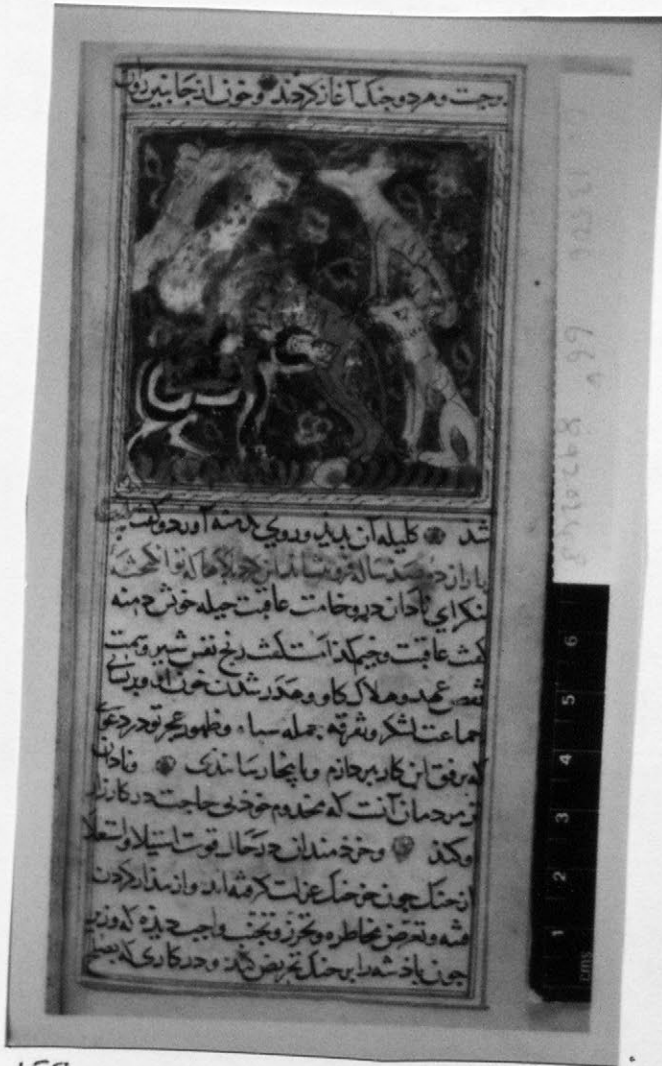 وهر دو جنک آغاز کردند و خون از جانبین روان
شد کلیله آن بدید و روی بدمنه آورد و گفت
باران دو صد ساله فرو ننشاند این
بنکر ای نادان در وخامت عاقبت حیله خویش دمنه
کفت عاقبت وخیم کدامست کفت رنج نفس شیر و سمت
نقض عهد و هلاک کاو و هدر شدن خون او و پریشانی
جماعت لشکر و تفرقه جمله سپاه و ظهور عجز تو در دعوی
که برفق این کار بپردازم و باینجا رسانیدی و نادان
تر مردمان آنست که مخدوم خود بی حاجت در کارزار
وکند و خردمندان در حال قوت استیلا و استعلا
از جنک چون خرچنک عزلت کرفته اند و از بیدار کردن
فتنه و تعرض مخاطره و تحرز و تجنب واجب دیده که وزیر
چون پادشه را بر جنک تحریض کند و در کاری که بصلح
1 2 3 4 5 6
cms